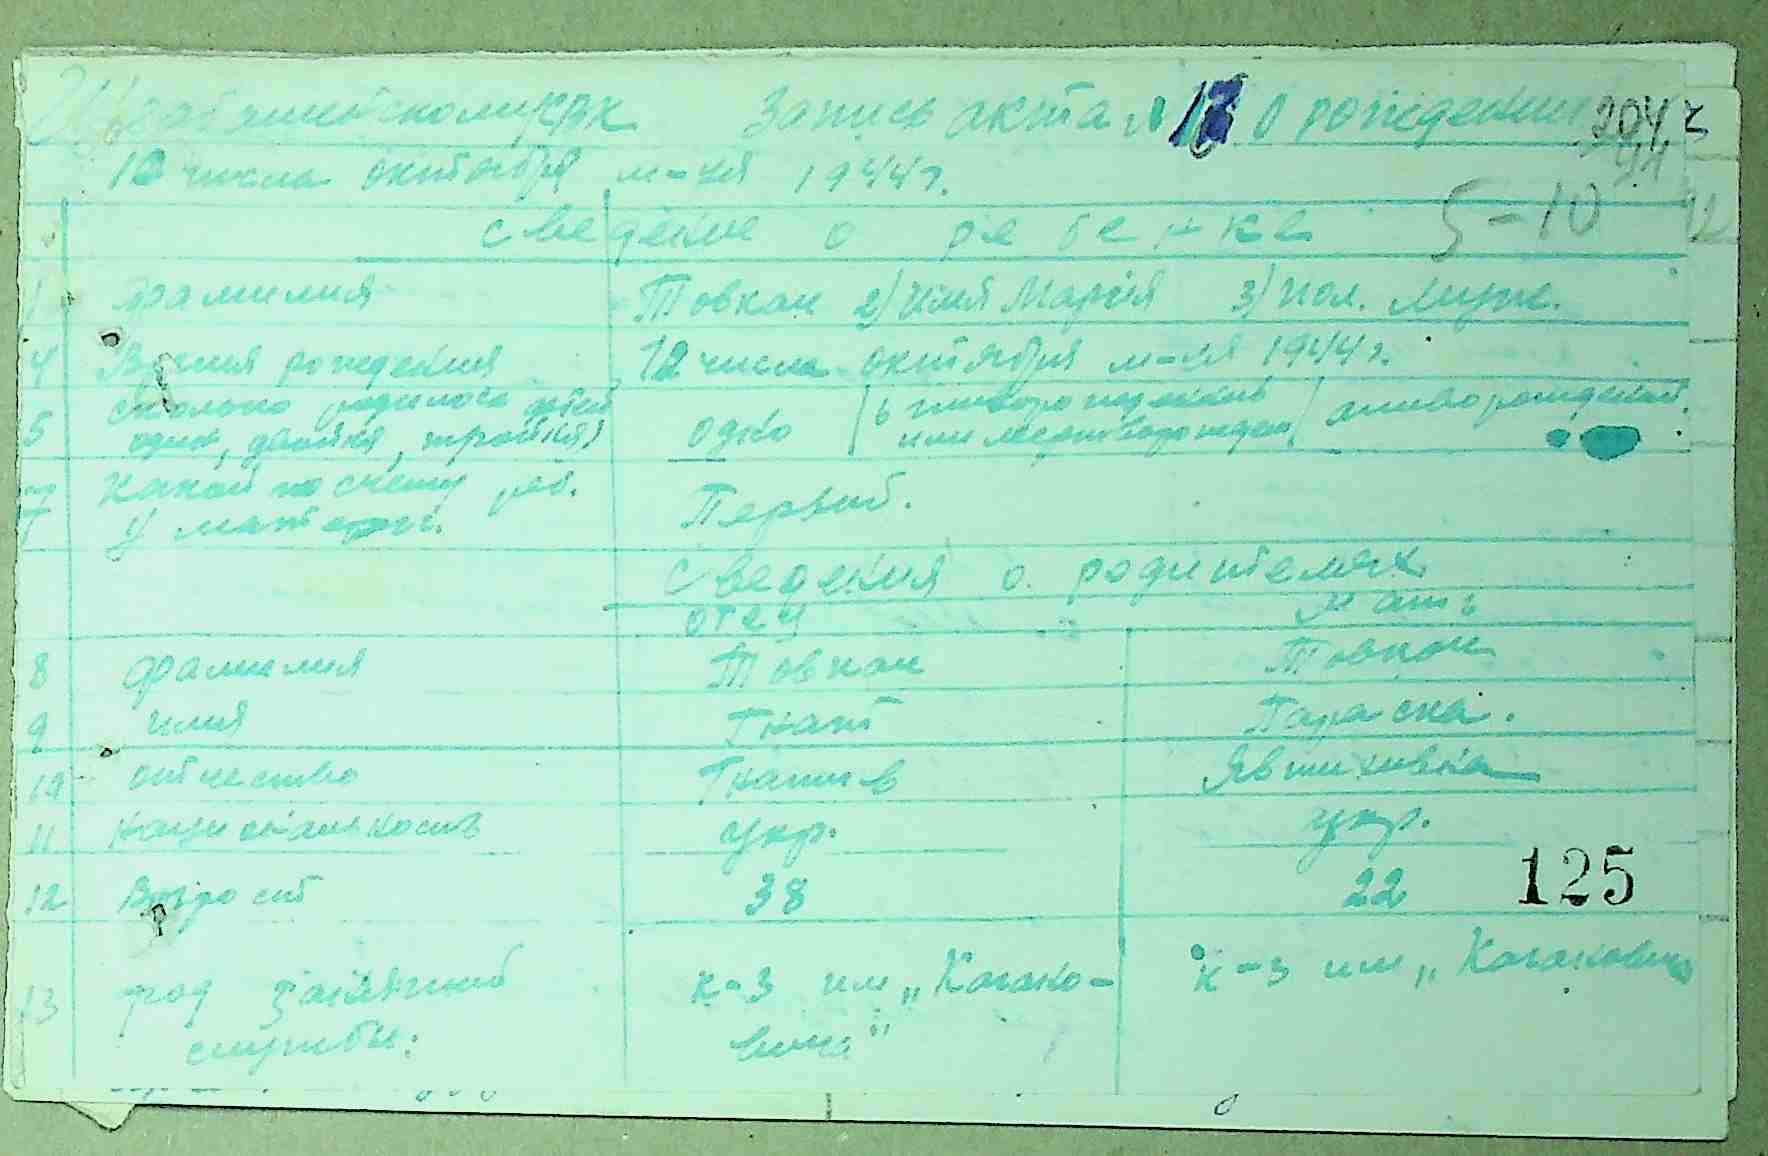 Запись акта № 18 о рождении 204
12 числа октября м-ця 1944 г.
5-10
Сведение о ребенке
1 Фамилия Товкач 2) Имя Марія 3) Пол. Муж.
4 Время рождения 12 числа октября м-ця 1944 г.
5 Сколько родилось детей один, двойня, тройня) одно 6 живорожденны или мертворожден живорожденый.
7 Какой по счету реб. У матери. Первый.
Сведения о родителях
отец мать
8 Фамилия Товкач Товкач
9 имя Гнат Параска.
10 отчество Гнатив Явтихивна
11 национальность укр. укр.
12 Возрост 38 22
125
13 род занятий службы: к-з им „Кагановича" к-з им „Кагановича